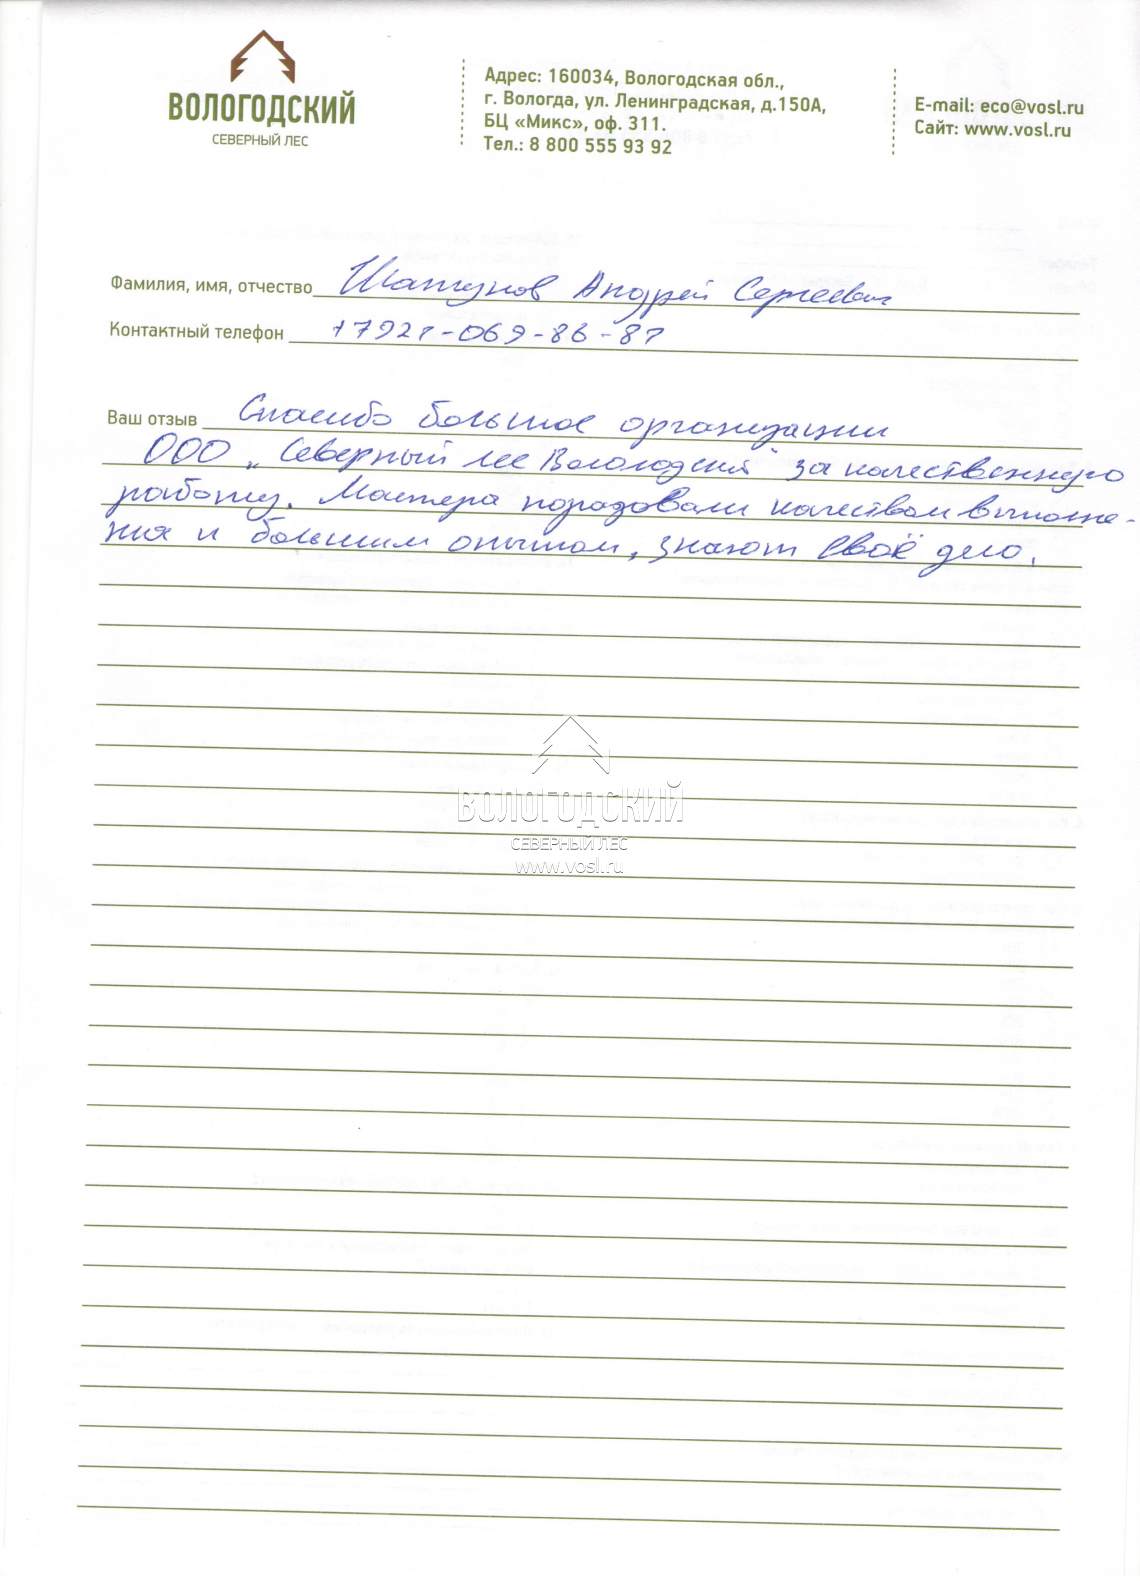 ВОЛОГОДСКИЙ
СЕВЕРНЫЙ ЛЕС
Адрес: 160034, Вологодская обл.,
г. Вологда, ул. Ленинградская, д.150А,
БЦ «Микс», оф. 311.
Тел.: 8 800 555 93 92
E-mail: eco@vosl.ru
Сайт: www.vosl.ru
Фамилия, имя, отчество Шатунов Андрей Сергеевич
Контактный телефон +7921-069-86-81
Ваш отзыв Спасибо большое организации
ООО „Северный лес Вологодский" за качественную
работу. Мастера порадовали качеством выполне-
ния и большим опытом, знают своё дело.
ВОЛОГОДСКИЙ
СЕВЕРНЫЙ ЛЕС
www.vosl.ru